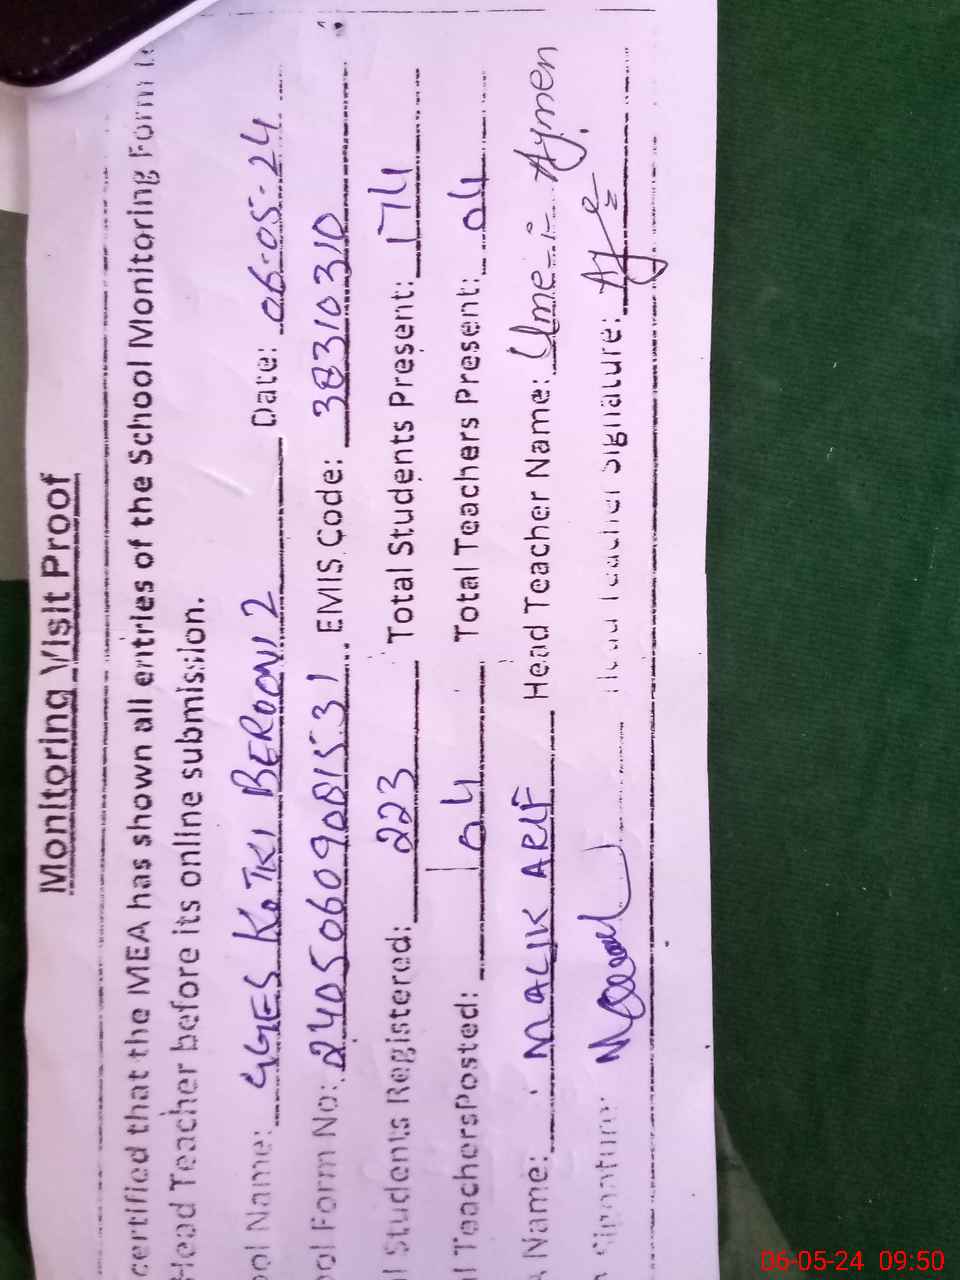 Monitoring Visit Proof
certified that the MEA has shown all entries of the School Monitoring Form
Head Teacher before its online submission.
ool Name: GGES KOTKI BEROONI 2 Date: 06-05-24
ool Form No: 240506090815531 EMIS Code: 38310310
l Students Registered: 223 Total Students Present: 174
l TeachersPosted: 04 Total Teachers Present: 04
Name: MALIK ARIF Head Teacher Name: Ume-i-Aymen
Signature: Head Teacher Signature:
06-05-24 09:50